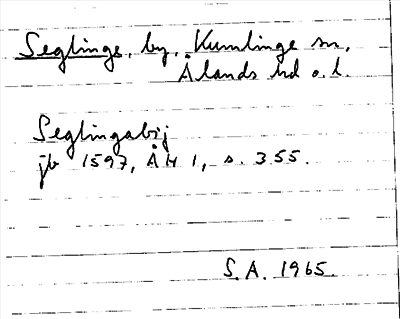 Seglinge, by, Kumlinge sn,
Ålands hd o. l.
Seglingabij
jb 1597, ÅH 1, s. 355.
S. A. 1965.